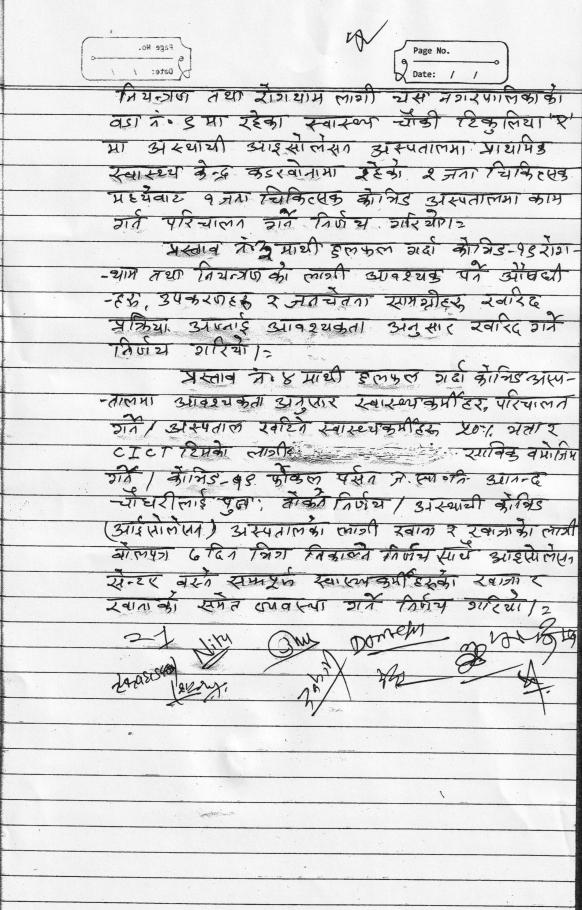 Page No.
Date: / /
नियन्त्रण तथा रोगथाम लागी यस नगरपालिकाको
वडा नं. ९ मा रहेका स्वास्थ्य चौकी टिकुलिया
मा अस्थायी आइसोलेसन अस्पतालमा प्राथमिक
स्वास्थ्य केन्द्र कडरवोनामा रहेको २ जना चिकित्सक
मध्येवाट १ जना चिकित्सक कोभिड अस्पतालमा काम
गर्न परिचालन गर्ने निर्णय गरियो।=
प्रस्ताव नं. ३ माथी छलफल गर्दा कोभिड-१९ रोग-
-थाम तथा नियन्त्रणको लागी आवश्यक पर्ने औषधी
-हरु, उपकरणहरु र जनचेतना सामग्रीहरु खरिद
प्रक्रिया अपनाई आवश्यकता अनुसार खरिद गर्ने
निर्णय गरियो।=
प्रस्ताव नं. ४ माथी छलफल गर्दा कोभिड अस्प-
-तालमा आवश्यकता अनुसार स्वास्थ्यकर्मीहरु परिचालन
गर्ने। अस्पताल खटिने स्वास्थ्यकर्मीहरु ५०% भत्ता र
CICT टिमको लागी साविक बमोजिम
गर्ने। कोभिड-१९ फोकल पर्सन आनन्द
चौधरीलाई पुनः तोक्ने निर्णय। अस्थायी कोभिड
(आईसोलेसन) अस्पतालका लागी खाना र खाजाको लागी
बोलपत्र ७ दिन भित्र निकाल्ने निर्णय साथै आइसोलेसन
सेन्टर बस्ने सम्पूर्ण स्वास्थ्यकर्मीहरुको खाजा र
खानाको समेत व्यवस्था गर्ने निर्णय गरियो।=
Nitu